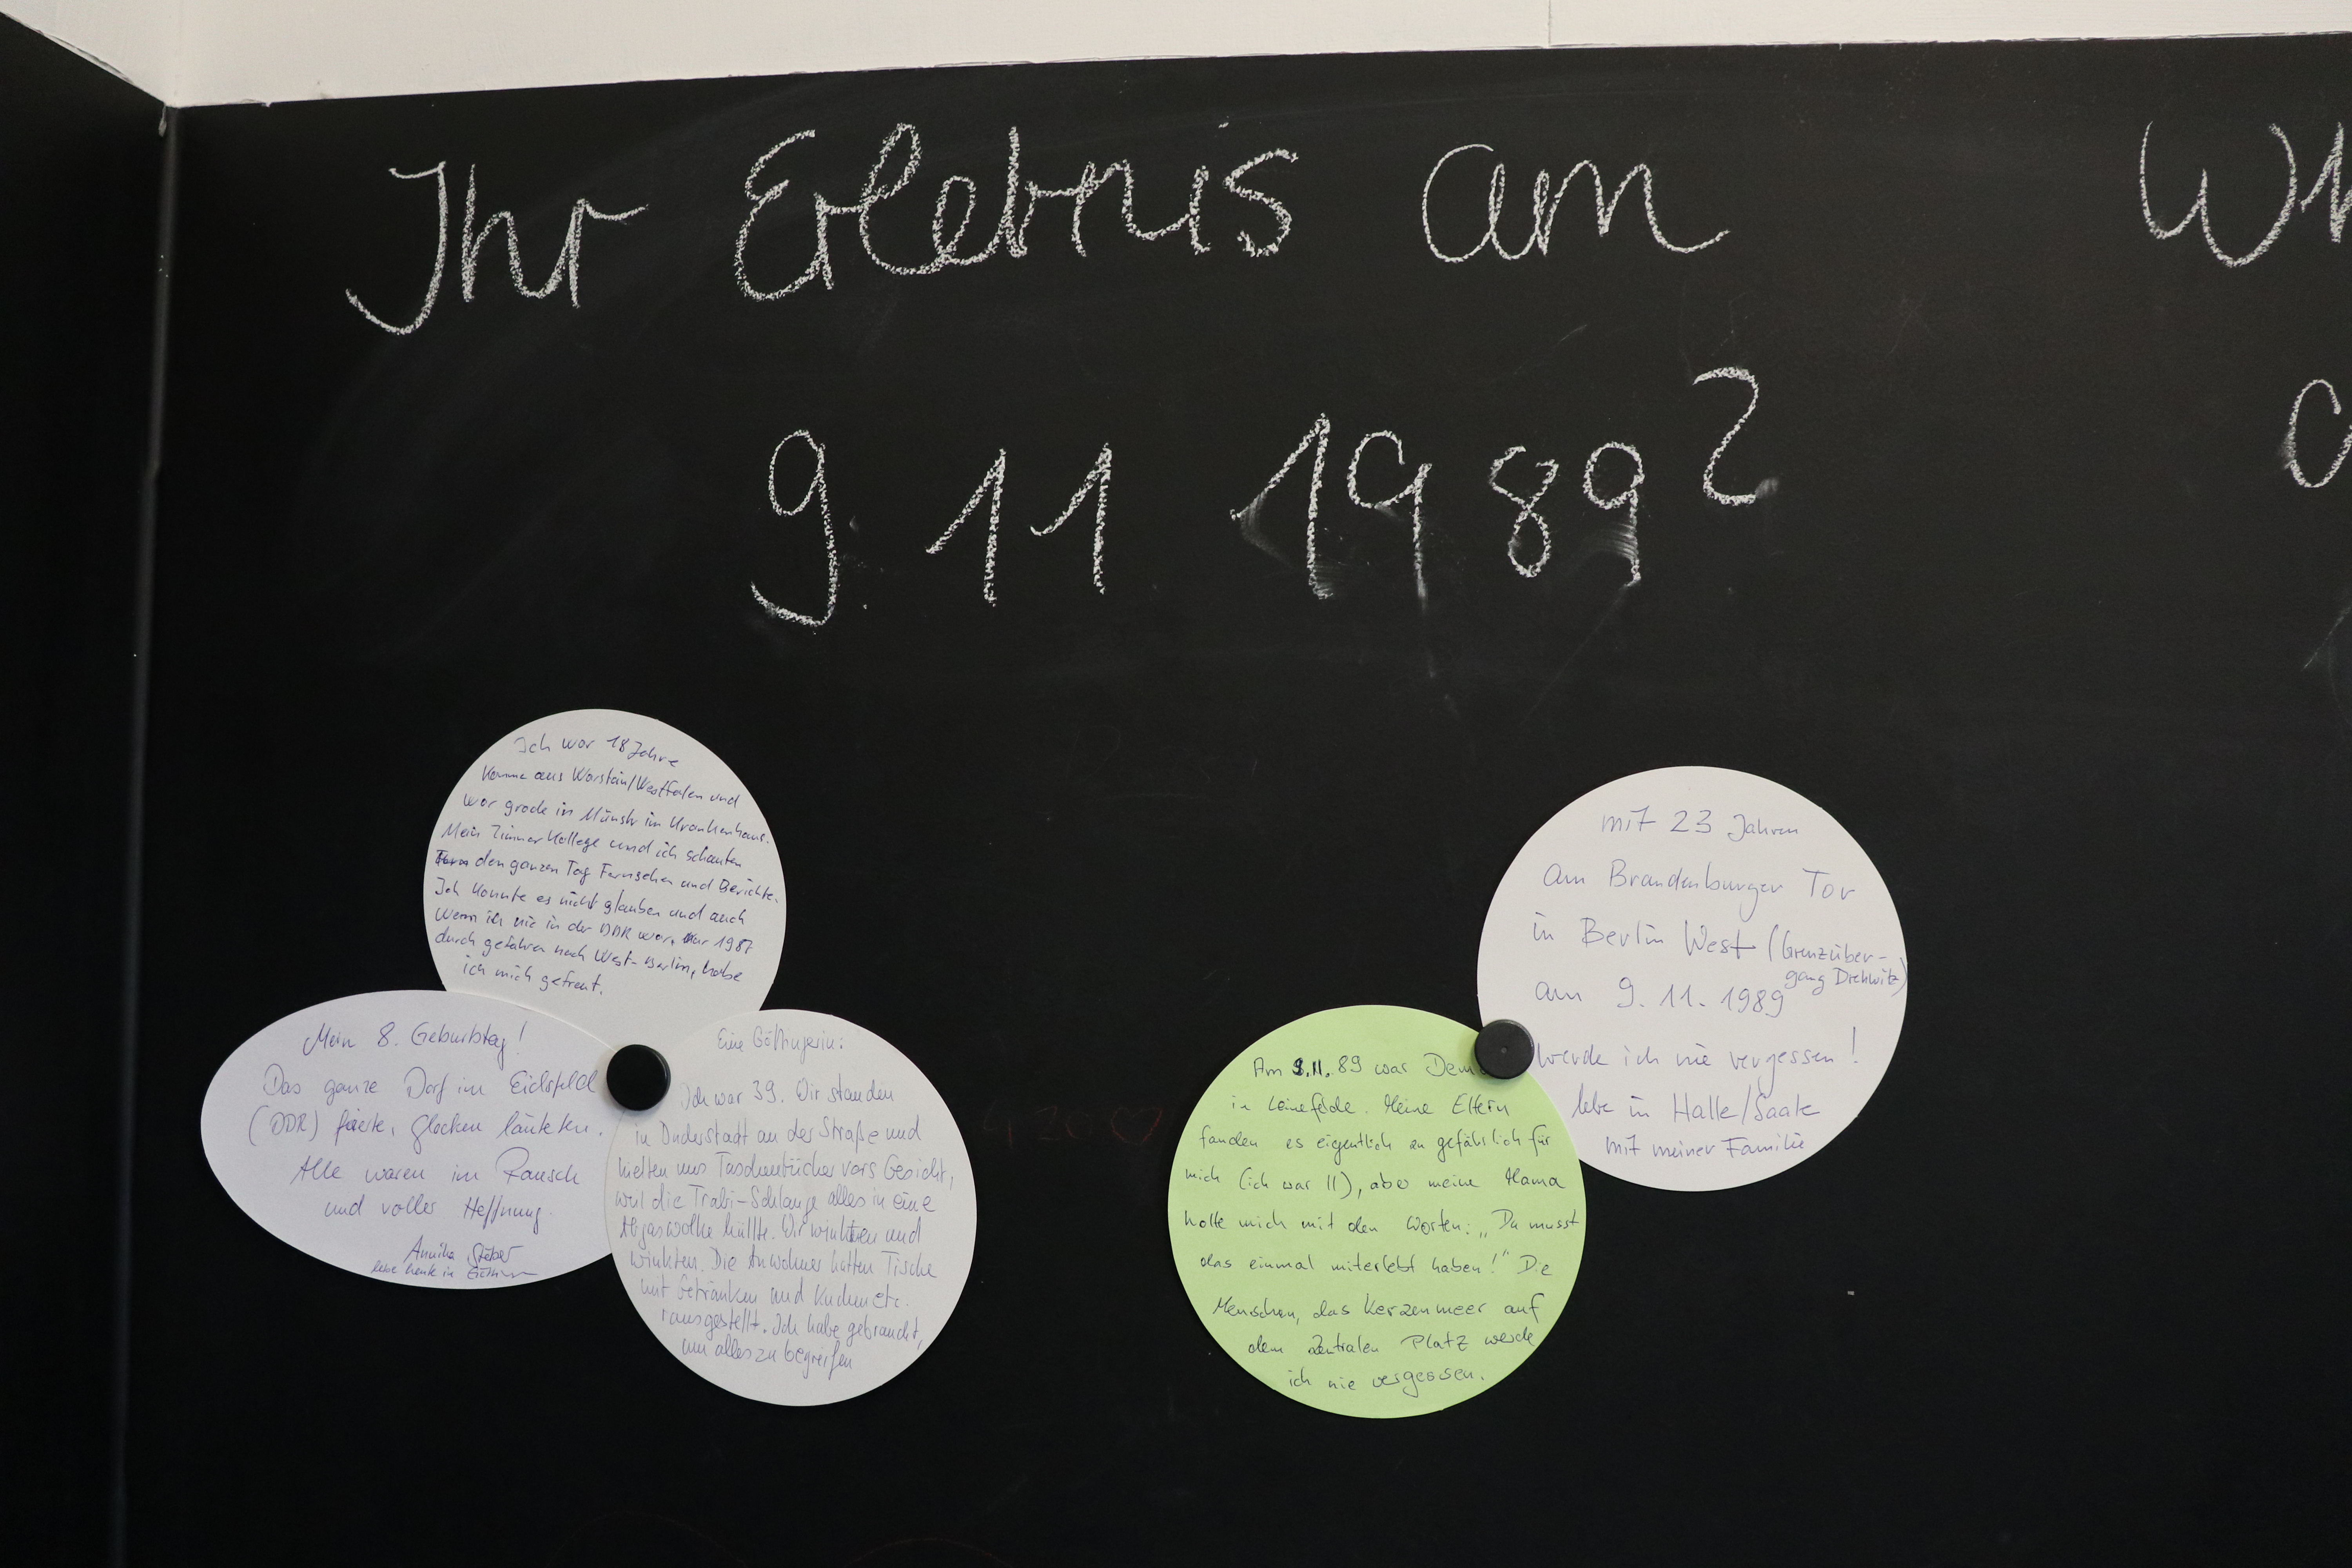 Ihr Erlebnis am
9. 11 1989?
Ich war 18 Jahre
Komme aus Warstein/Westfalen und
war grade in Münster im Krankenhaus.
Mein Zimmer Kollege und ich schauten
den ganzen Tag Fernsehen und Berichte.
Ich konnte es nicht glauben und auch
wenn ich nie in der DDR war, nur 1987
durch gefahren nach West-Berlin, habe
ich mich gefreut.
Mein 8. Geburtstag!
Das ganze Dorf im Eichsfeld
(DDR) feierte, Glocken läuteten.
Alle waren im Rausch
und voller Hoffnung.
Annika
lebe heute in
Eine Göttingerin:
Ich war 39. Wir standen
in Duderstadt an der Straße und
hielten uns Taschentücher vors Gesicht,
weil die Trabi-Schlange alles in eine
Abgaswolke hüllte. Wir winkten und
winkten. Die Anwohner hatten Tische
mit Getränken und Kuchen etc.
rausgestellt. Ich habe gebraucht,
um alles zu begreifen
Am 9.11.89 war Dem
in Leinefelde. Meine Eltern
fanden es eigentlich zu gefährlich für
mich (ich war 11), aber meine Mama
holte mich mit den Worten: „Du musst
das einmal miterlebt haben!" Die
Menschen, das Kerzenmeer auf
dem Zentralen Platz werde
ich nie vergessen.
mit 23 Jahren
am Brandenburger Tor
in Berlin West (Grenzüber-
gang Drehwitz)
am 9. 11. 1989
werde ich nie vergessen!
lebe in Halle/Saale
mit meiner Familie